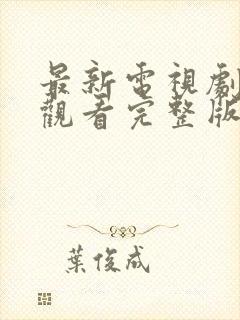 最新電視劇
觀看完整版
葉俊成